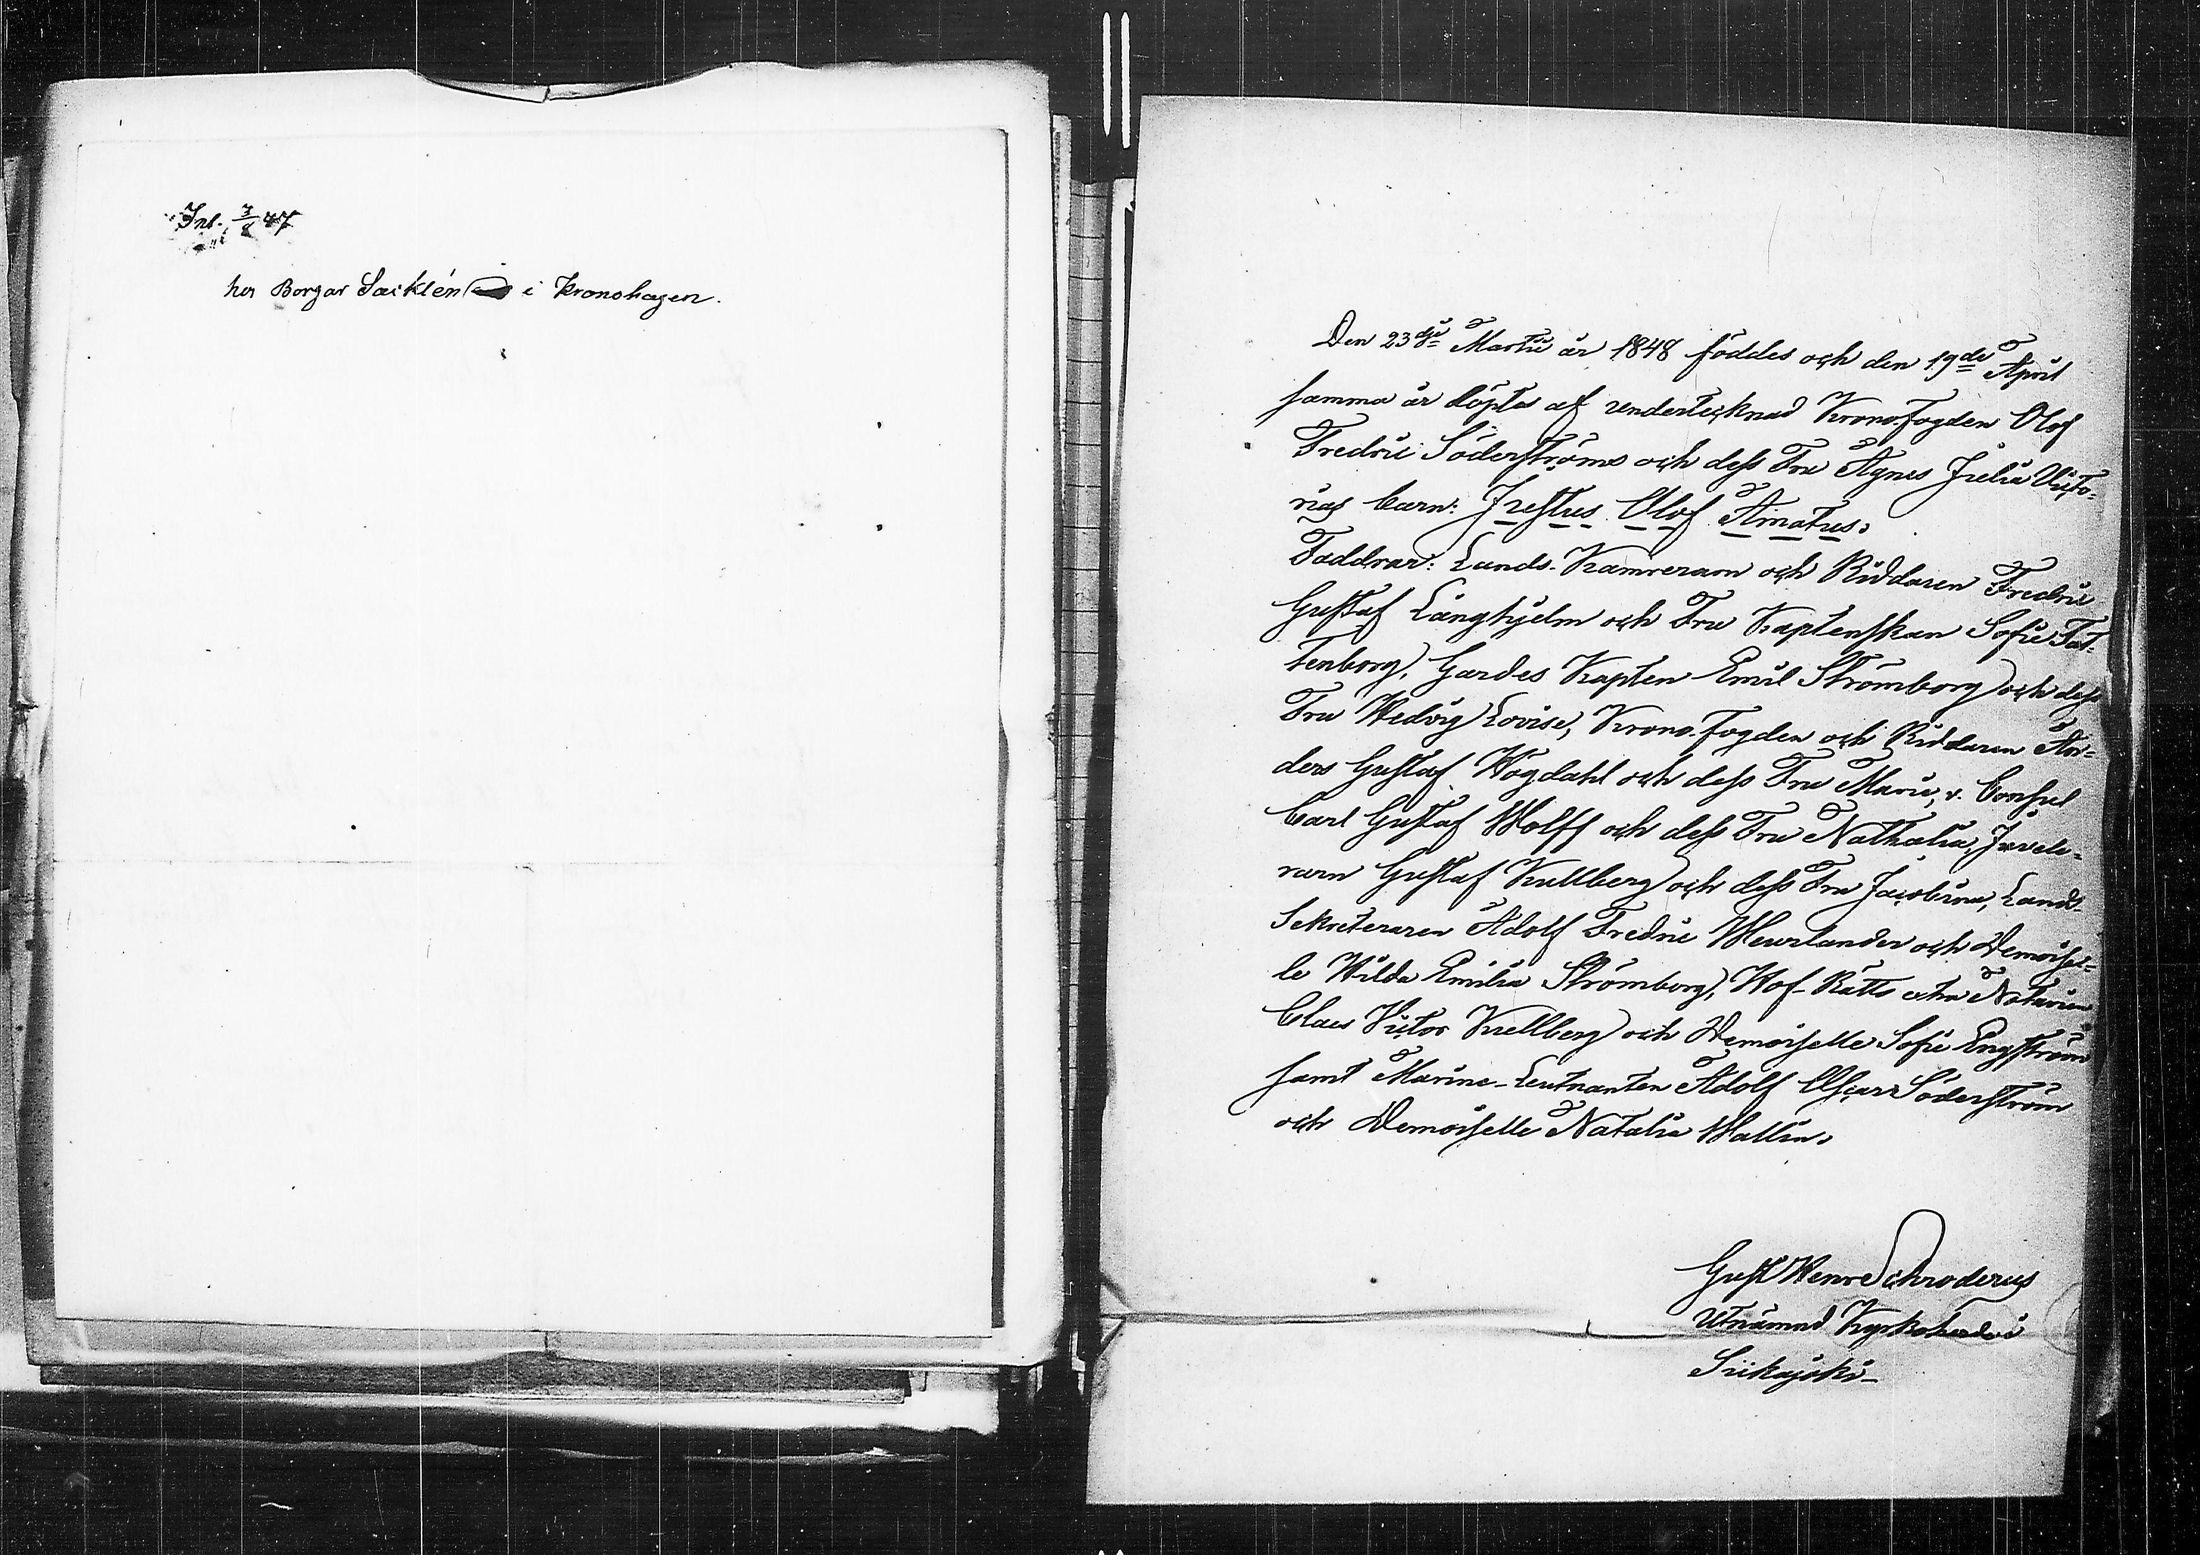 Inl. 3/8 47
hos Borgar Sacklén i Kronohagen.
Den 23dje Martii år 1848 föddes och den 19de April
samma år döptes af undertecknad Kronofogden Olof
Fredric Söderströms och dess Fru Agnes Julia Victo-
rias barn: Justus Olof Amatus.
Faddrar: Lands-Kamreraren och Riddaren Fredric
Gustaf Långhjelm och Fru Kaptenskan Sofie Tat-
tenborg, Gardes Kapten Emil Strömborg och dess
Fru Hedvig Lovise, Krono-fogden och Riddaren An-
ders Gustaf Högdahl och dess Fru Marie, v. Consul
Carl Gustaf Wolff och dess Fru Nathalia, Juvele-
raren Gustaf Kullberg och dess Fru Jacobina, Lands-
Sekreteraren Adolf Fredric Weurlander och Demoisel-
le Hilda Emilia Strömborg, Hof-Rätts extra Notarien
Claes Victor Kullberg och Demoiselle Sofie Engström
samt Marine-Leutnanten Adolf Oscar Söderström
och Demoiselle Natalia Wallin.
Gust Henr Schroderus
Utnämnd Kyrkoherde i
Siikajoki